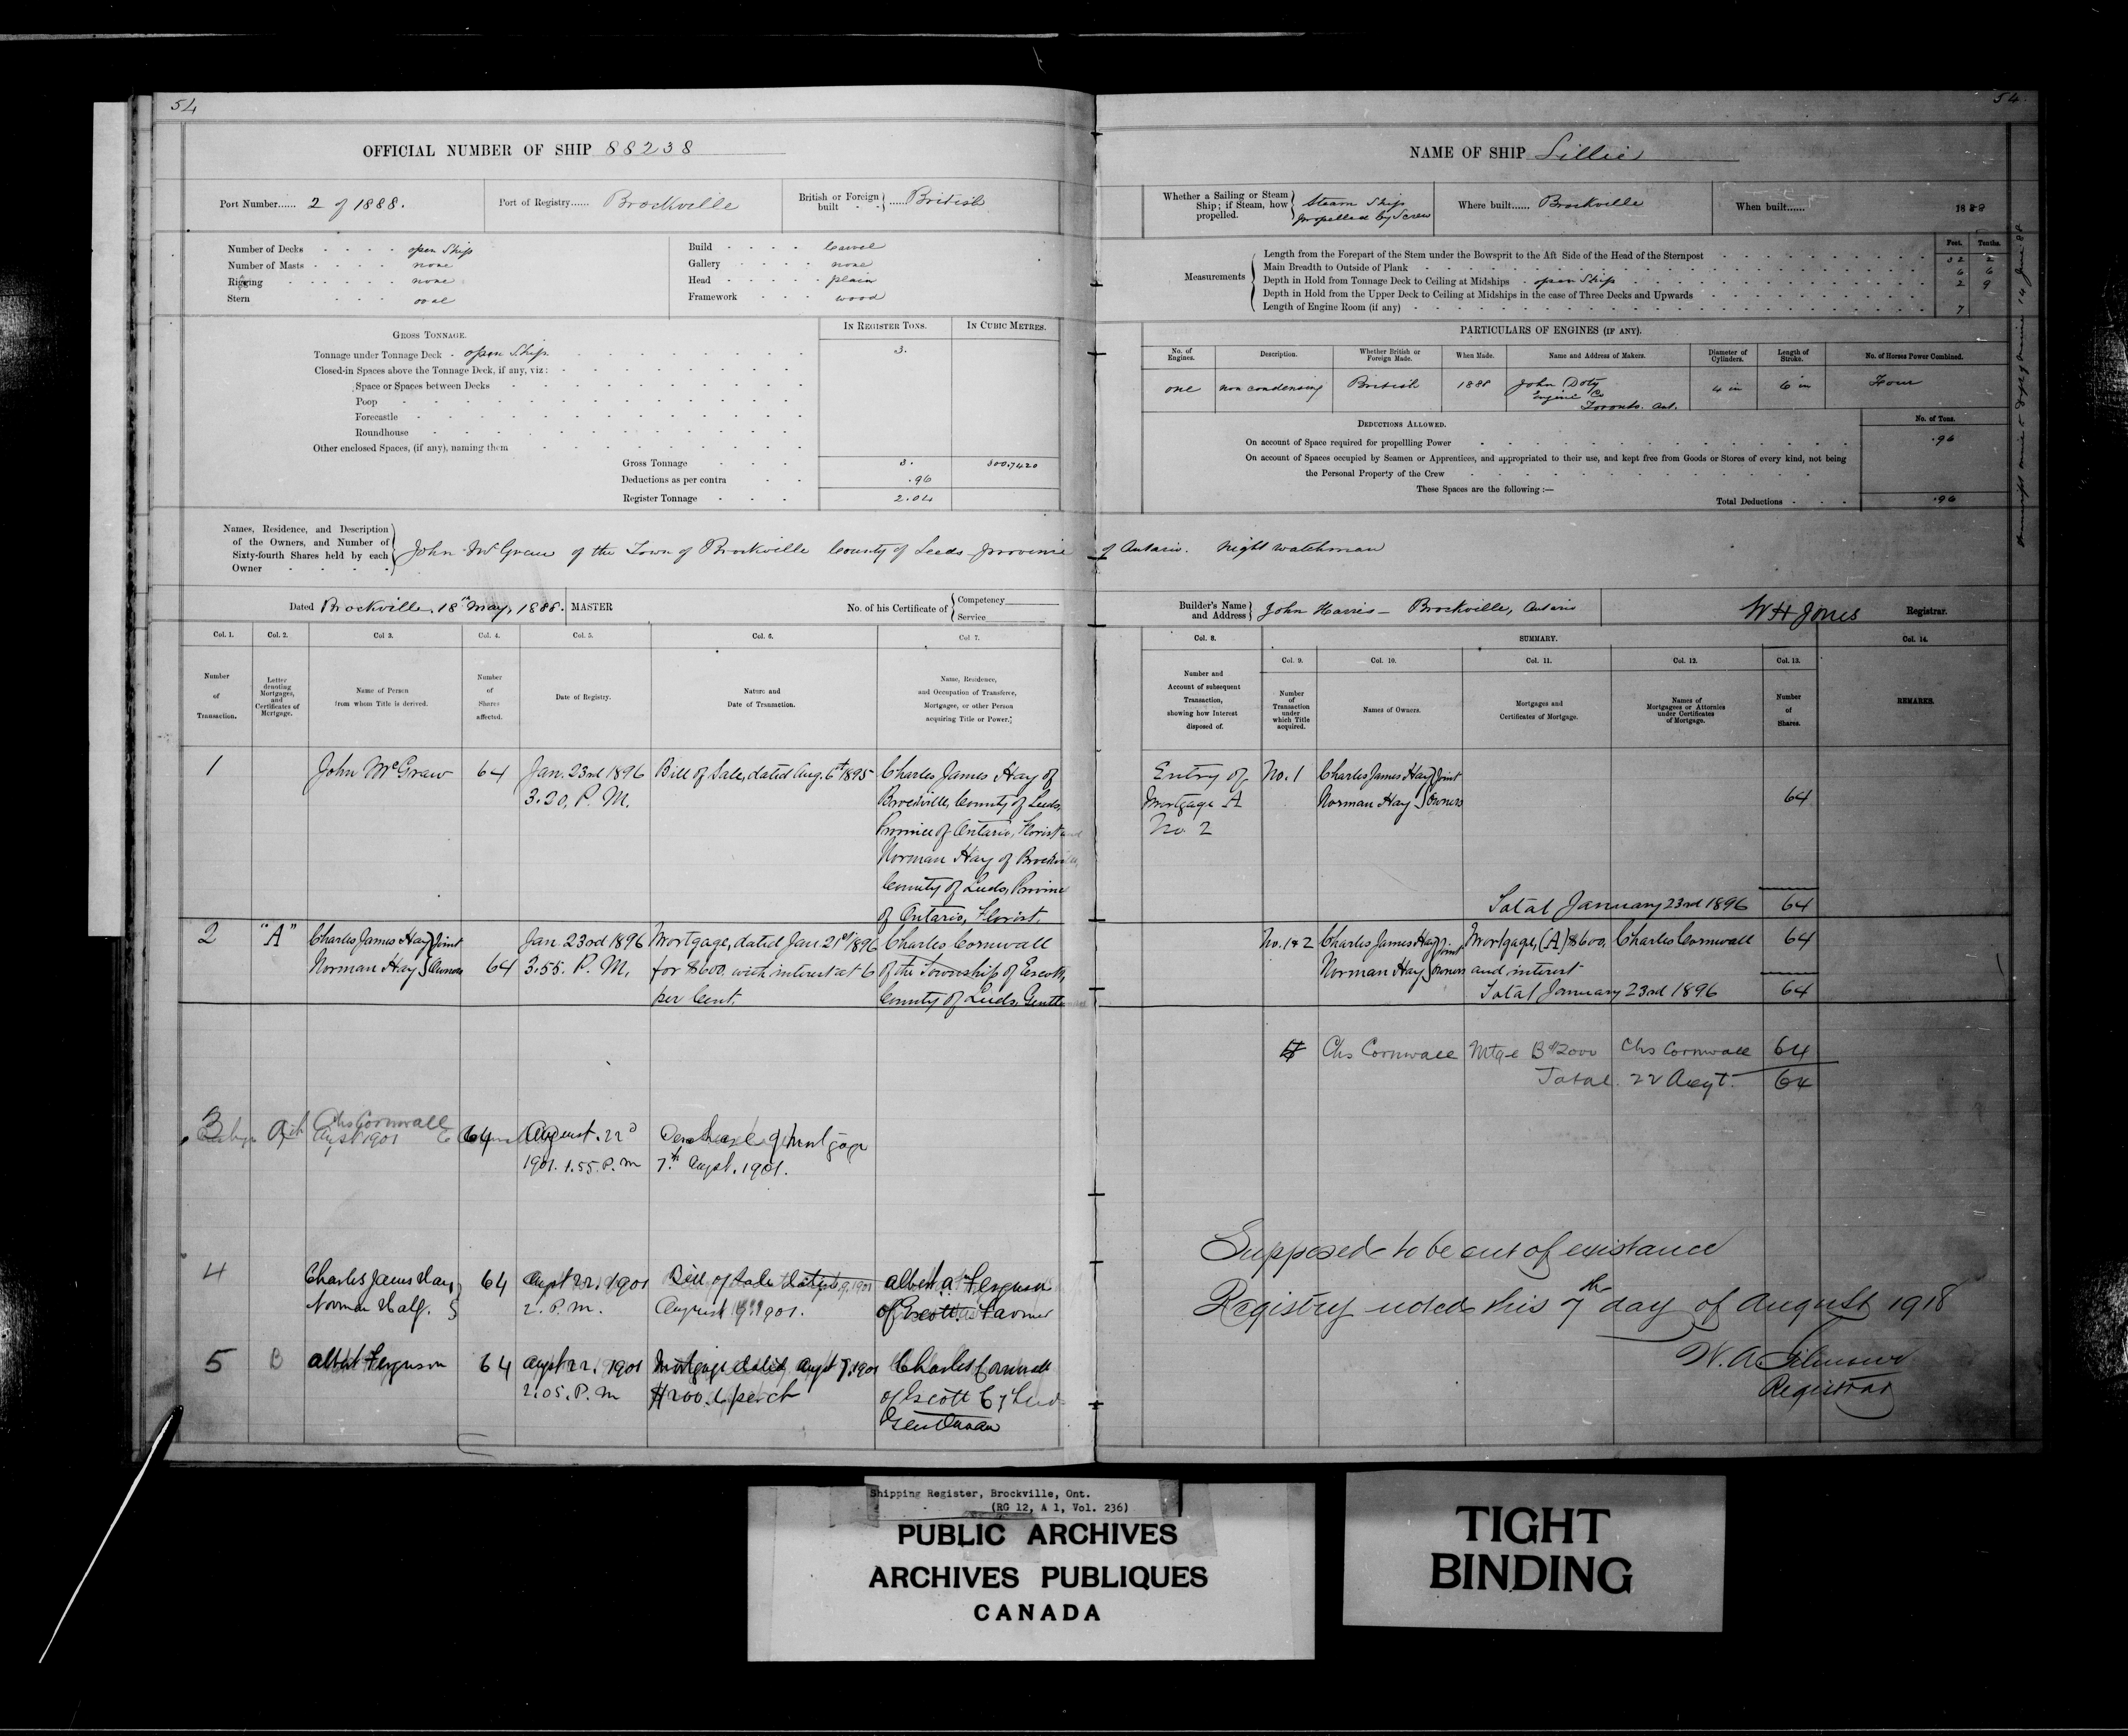 54
OFFICIAL NUMBER OF SHIP 88238
Port Number...... 2 of 1888.
Port of Registry...... Brockville
British or Foreign built - - } ...... British
Number of Decks - - - - open Ship
Number of Masts - - - - none
Rigging - - - - - none
Stern - - - oval
Build - - - - Carvel
Gallery - - - - none
Head - - - - plain
Framework - - - wood
GROSS TONNAGE.
IN REGISTER TONS.
IN CUBIC METRES.
Tonnage under Tonnage Deck - open Ship 3.
Closed-in Spaces above the Tonnage Deck, if any, viz:
Space or Spaces between Decks
Poop
Forecastle
Roundhouse
Other enclosed Spaces, (if any), naming them
Gross Tonnage 3. 300.7420
Deductions as per contra .96
Register Tonnage 2.04
Names, Residence, and Description
of the Owners, and Number of
Sixty-fourth Shares held by each
Owner
John McGraw of the Town of Brockville County of Leeds province
Dated Brockville, 18th May, 1888. MASTER
No. of his Certificate of { Competency
Service
Col. 1. Col. 2. Col 3. Col. 4. Col. 5. Col. 6. Col 7.
Number of Transaction.
Letter denoting Mortgages, and Certificates of Mortgage.
Name of Person from whom Title is derived.
Number of Shares affected.
Date of Registry.
Nature and Date of Transaction.
Name, Residence, and Occupation of Transferee, Mortgagee, or other Person acquiring Title or Power.
1 John McGraw 64 Jan. 23rd 1896 Bill of Sale, dated Aug. 6th 1895 Charles James Hay of
3.20. P. M. Brockville, County of Leeds,
Province of Ontario, Florist and
Norman Hay of Brockville,
County of Leeds, Province
of Ontario, Florist.
2 "A" Charles James Hay } Joint Jan. 23rd 1896 Mortgage, dated Jan. 21st 1896 Charles Cornwall
Norman Hay } Owners 64 3.55. P. M. for $600. with interest at 6 of the Township of Escott,
per Cent. County of Leeds, Gentleman
3 Chs Cornwall
Augst 1901 64 August. 22d
1901. 1.55. P. M Discharge of Mortgage
7th Augst. 1901.
4 Charles James Hay 64 Augst 22. 1901 Bill of Sale dated Albert A. Ferguson
Norman Hay. 2. P. M. August 1901. of Escott Farmer
5 B Albert Ferguson 64 Augst 22. 1901 Mortgage dated Augst 7. 1901 Charles Cornwall
2.05. P. M $200. 6 per ct of Escott Cy Leeds
Gentleman
54
NAME OF SHIP Lillie
Whether a Sailing or Steam
Ship; if Steam, how
propelled.
Steam Ship
propelled by Screw
Where built...... Brockville
When built...... 1888
Measurements
Feet. Tenths.
Length from the Forepart of the Stem under the Bowsprit to the Aft Side of the Head of the Sternpost 32 2
Main Breadth to Outside of Plank 6 6
Depth in Hold from Tonnage Deck to Ceiling at Midships - open Ship 2 9
Depth in Hold from the Upper Deck to Ceiling at Midships in the case of Three Decks and Upwards
Length of Engine Room (if any) 7
PARTICULARS OF ENGINES (IF ANY).
No. of Engines. Description. Whether British or Foreign Made. When Made. Name and Address of Makers. Diameter of Cylinders. Length of Stroke. No. of Horses Power Combined.
one non condensing British 1888 John Doty 4 in 6 in Four
Engine Co
Toronto. Ont.
DEDUCTIONS ALLOWED.
No. of Tons.
On account of Space required for propelling Power .96
On account of Spaces occupied by Seamen or Apprentices, and appropriated to their use, and kept free from Goods or Stores of every kind, not being
the Personal Property of the Crew
These Spaces are the following :—
Total Deductions .96
of Ontario. Night watchman
Builder's Name and Address } John Harris - Brockville, Ontario
W H Jones Registrar.
Col. 8. SUMMARY. Col. 14.
Col. 9. Col. 10. Col. 11. Col. 12. Col. 13.
Number and Account of subsequent Transaction, showing how Interest disposed of.
Number of Transaction under which Title acquired.
Names of Owners.
Mortgages and Certificates of Mortgage.
Names of Mortgagees or Attornies under Certificates of Mortgage.
Number of Shares.
REMARKS.
Entry of No. 1 Charles James Hay } Joint
Mortgage A Norman Hay } Owners 64
No. 2
Total January 23rd 1896 64
No. 1 & 2 Charles James Hay } Joint Mortgage, (A) $600. Charles Cornwall 64
Norman Hay } Owners and interest
Total January 23rd 1896 64
Chs Cornwall Mtge B $2000 Chs Cornwall 64
Total. 22 Augt. 64
Supposed to be out of existance
Registry closed this 7th day of August 1918
W. A.
Registrar
Shipping Register, Brockville, Ont.
(RG 12, A 1, Vol. 236)
PUBLIC ARCHIVES
ARCHIVES PUBLIQUES
CANADA
TIGHT
BINDING